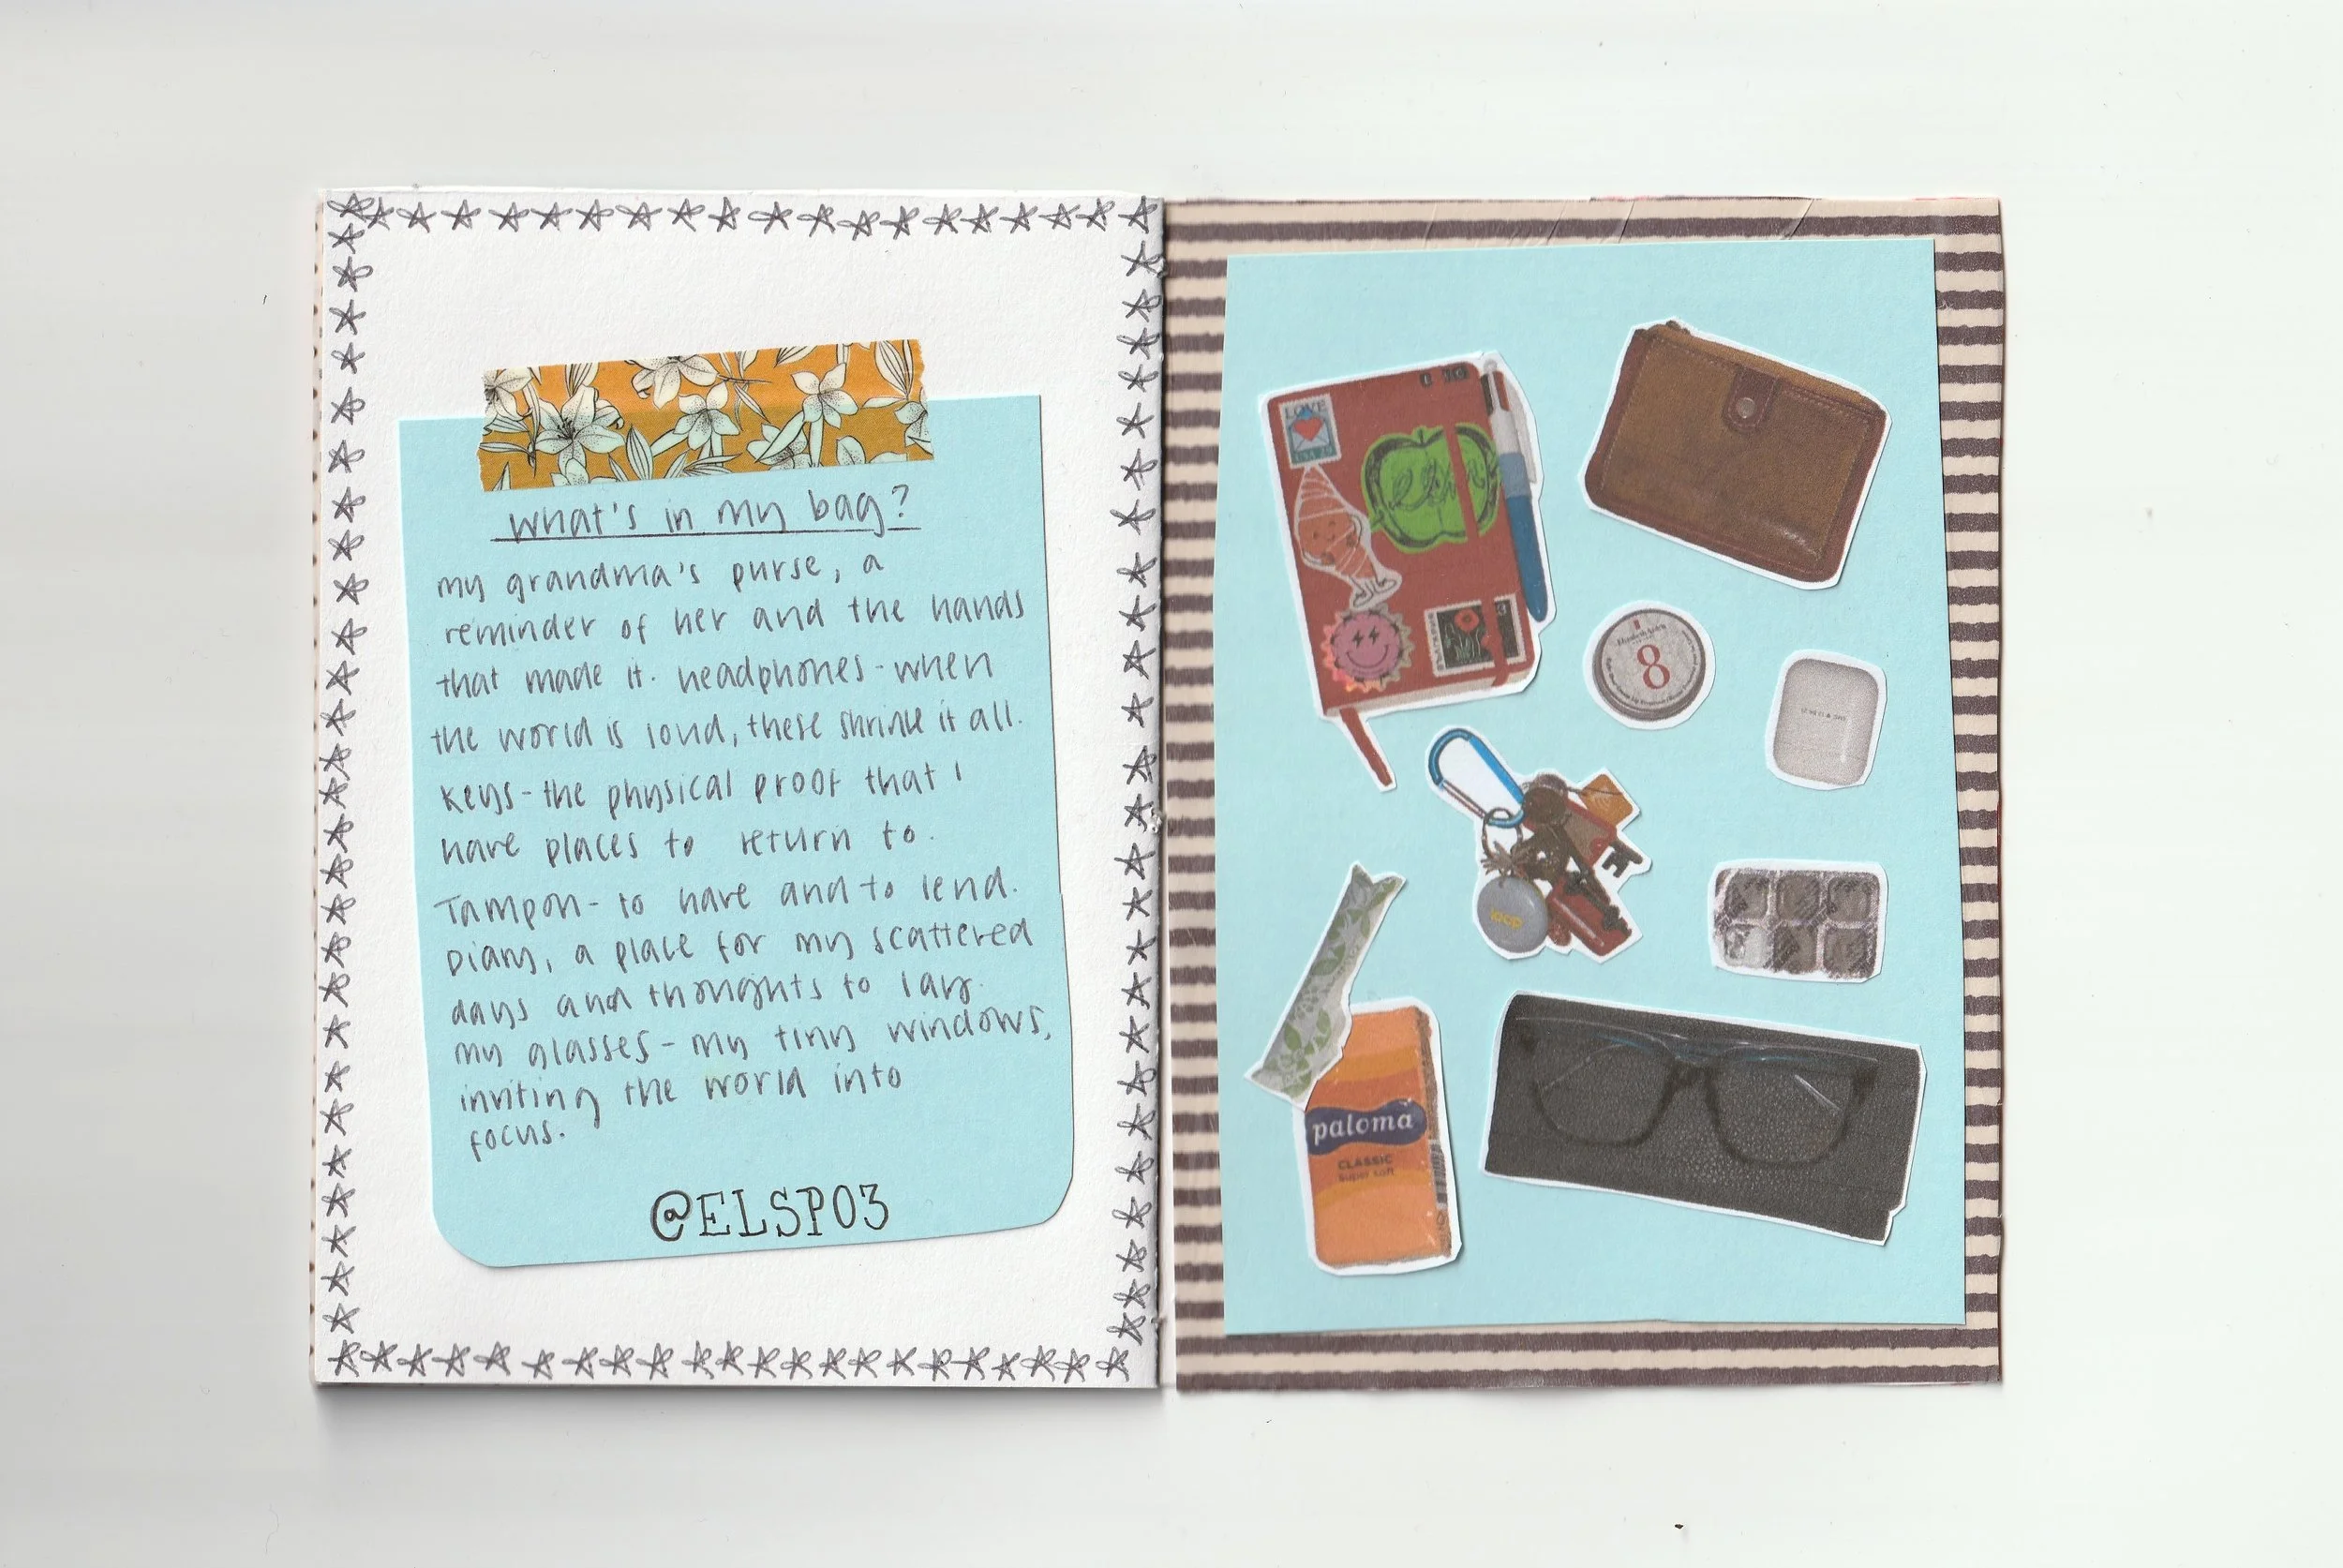 what's in my bag?
my grandma's purse, a
reminder of her and the hands
that made it. headphones - when
the world is loud, these shrink it all.
keys - the physical proof that I
have places to return to.
Tampon - to have and to lend.
Diary, a place for my scattered
days and thoughts to lay.
my glasses - my tiny windows,
inviting the world into
focus.
@ELSP03
LOVE
8
loop
paloma
CLASSIC
super soft